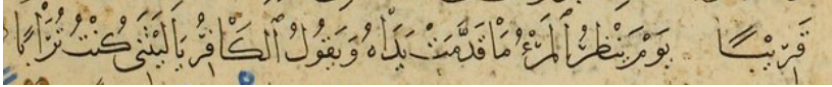 قَرِيبًا يَوْمَ يَنْظُرُ الْمَرْءُ مَا قَدَّمَتْ يَدَاهُ وَيَقُولُ الْكَافِرُ يَا لَيْتَنِي كُنْتُ تُرَابًا